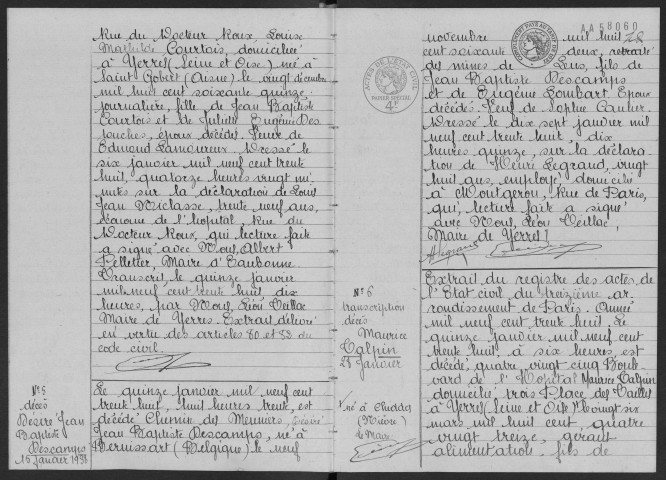 Rue du Docteur Roux, Louise
Mathilde Courtois, domiciliée
à Yerres (Seine et Oise) né à
Saint Gobert (Aisne) le vingt décembre
mil huit cent soixante quinze,
journalière, fille de Jean Baptiste
Courtois et de Juliette Eugénie Des
puches, époux décédés. Veuve de
Edmond Lamoureux. Dressé le
six janvier mil neuf cent trente
huit, quatorze heures vingt mi
nutes sur la déclaration de Louis
Jean Niclasse, trente neuf ans,
économe de l'hôpital, Rue du
Docteur Roux, qui lecture faite
a signé avec Nous, Albert
Pelletier, Maire d'Eaubonne.
Transcrit le quinze janvier
mil neuf cent trente huit dix
heures, par Nous, Léon Veillac
Maire de Yerres. Extrait délivré
en vertu des articles 80 et 82 du
code civil.
N° 5
décès
Désiré Jean
Baptiste
Descamps
15 janvier 1938
Le quinze janvier mil neuf cent
trente huit, huit heures trente, est
décédé Chemin des Meuniers, Désiré
Jean Baptiste Descamps, né à
Bernissart (Belgique) le neuf
ACTES DE L'ÉTAT CIVIL
PAPIER SPÉCIAL
AA58060
novembre mil huit
cent soixante deux, retraité
des mines de Lens, fils de
Jean Baptiste Descamps
et de Eugénie Loubart Epoux
décédés. Veuf de Sophie Caulier.
Dressé le dix sept janvier mil
neuf cent trente huit, dix
heures quinze, sur la déclara
tion de Henri Legrand, vingt
huit ans, employé, domicilié
à Montgeron, Rue de Paris,
qui, lecture faite a signé
avec Nous, Léon Veillac,
Maire de Yerres!
HLegrand
N° 6
transcription
décès
Maurice
Talpin
25 janvier
né à Chiddes
(Nièvre)
le Maire
Extrait du registre des actes de
l'Etat civil du treizième ar
rondissement de Paris. Année
mil neuf cent trente huit. Le
quinze janvier mil neuf cent
trente huit, à six heures est
décédé quatre vingt cinq Boule
vard de l'Hôpital Maurice Talpin
domicilié trois Place des Taillis
à Yerres (Seine et Oise) le vingt six
mars mil huit cent quatre
vingt treize, gérant
alimentation, fils de